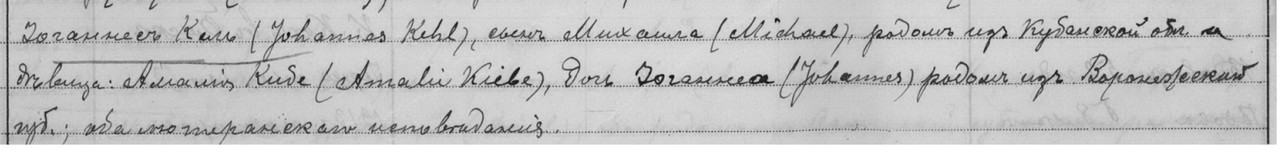 Іоганнесъ Кель (Johannes Kehl), сынъ Михаила (Michael), родомъ изъ Кубанской обл. и
дѣвица: Амалія Кибе (Amalie Kiebe), дочь Іоганнеса (Johannes) родомъ изъ Воронежской
губ.; оба лютеранскаго исповѣданія.